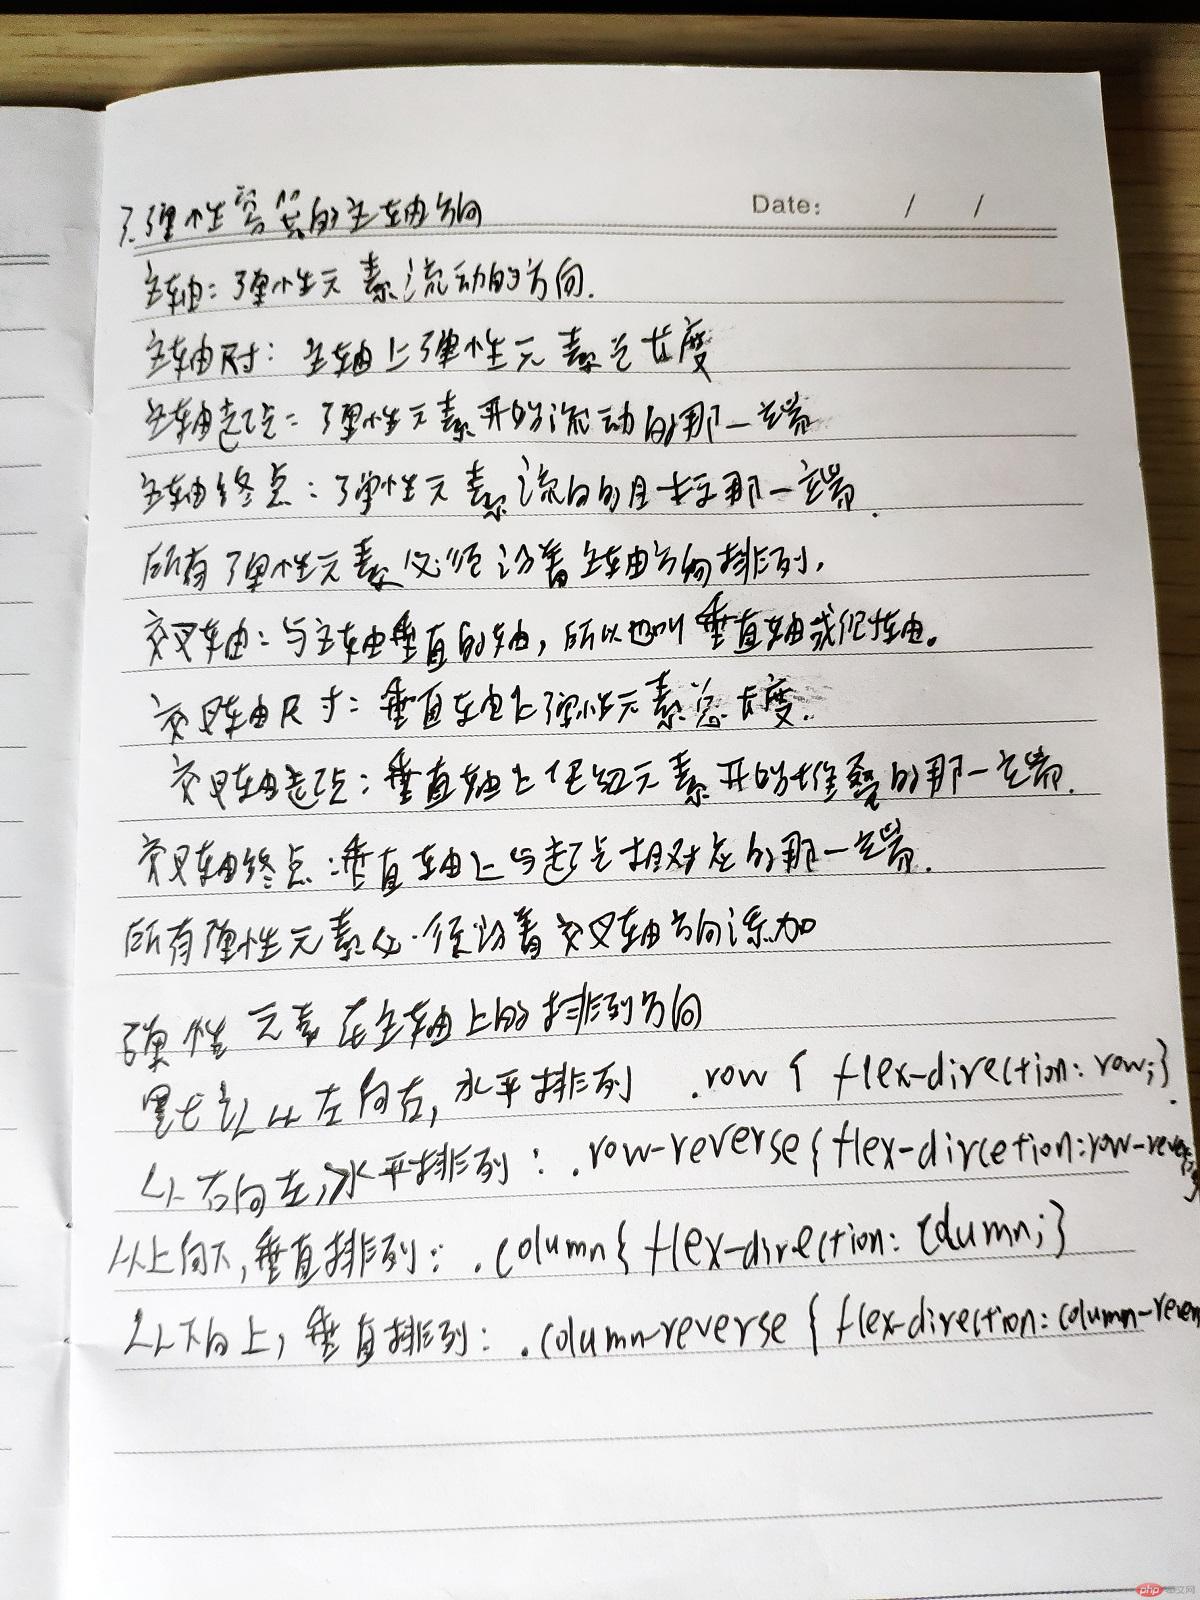 3.弹性容器的主轴方向
Date: / /
主轴:弹性元素流动的方向.
主轴尺寸:主轴上弹性元素总长度
主轴起点:弹性元素开始流动的那一端
主轴终点:弹性元素流向的目标那一端.
所有弹性元素必须沿着主轴方向排列.
交叉轴:与主轴垂直的轴,所以也叫垂直轴或轴。
交叉轴尺寸:垂直轴上弹性元素总长度.
交叉轴起点:垂直轴上元素开始堆叠的那一端.
交叉轴终点:垂直轴上与起点相对应的那一端.
所有弹性元素必须沿着交叉轴方向添加
弹性元素在主轴上的排列方向
默认从左向右,水平排列 .row { flex-direction: row;}
从右向左,水平排列: .row-reverse{flex-dircetion:row-reverse;}
从上向下,垂直排列: .column{ flex-direction: column;}
从下向上,垂直排列: .column-reverse { flex-direction: column-rever
php 中文网